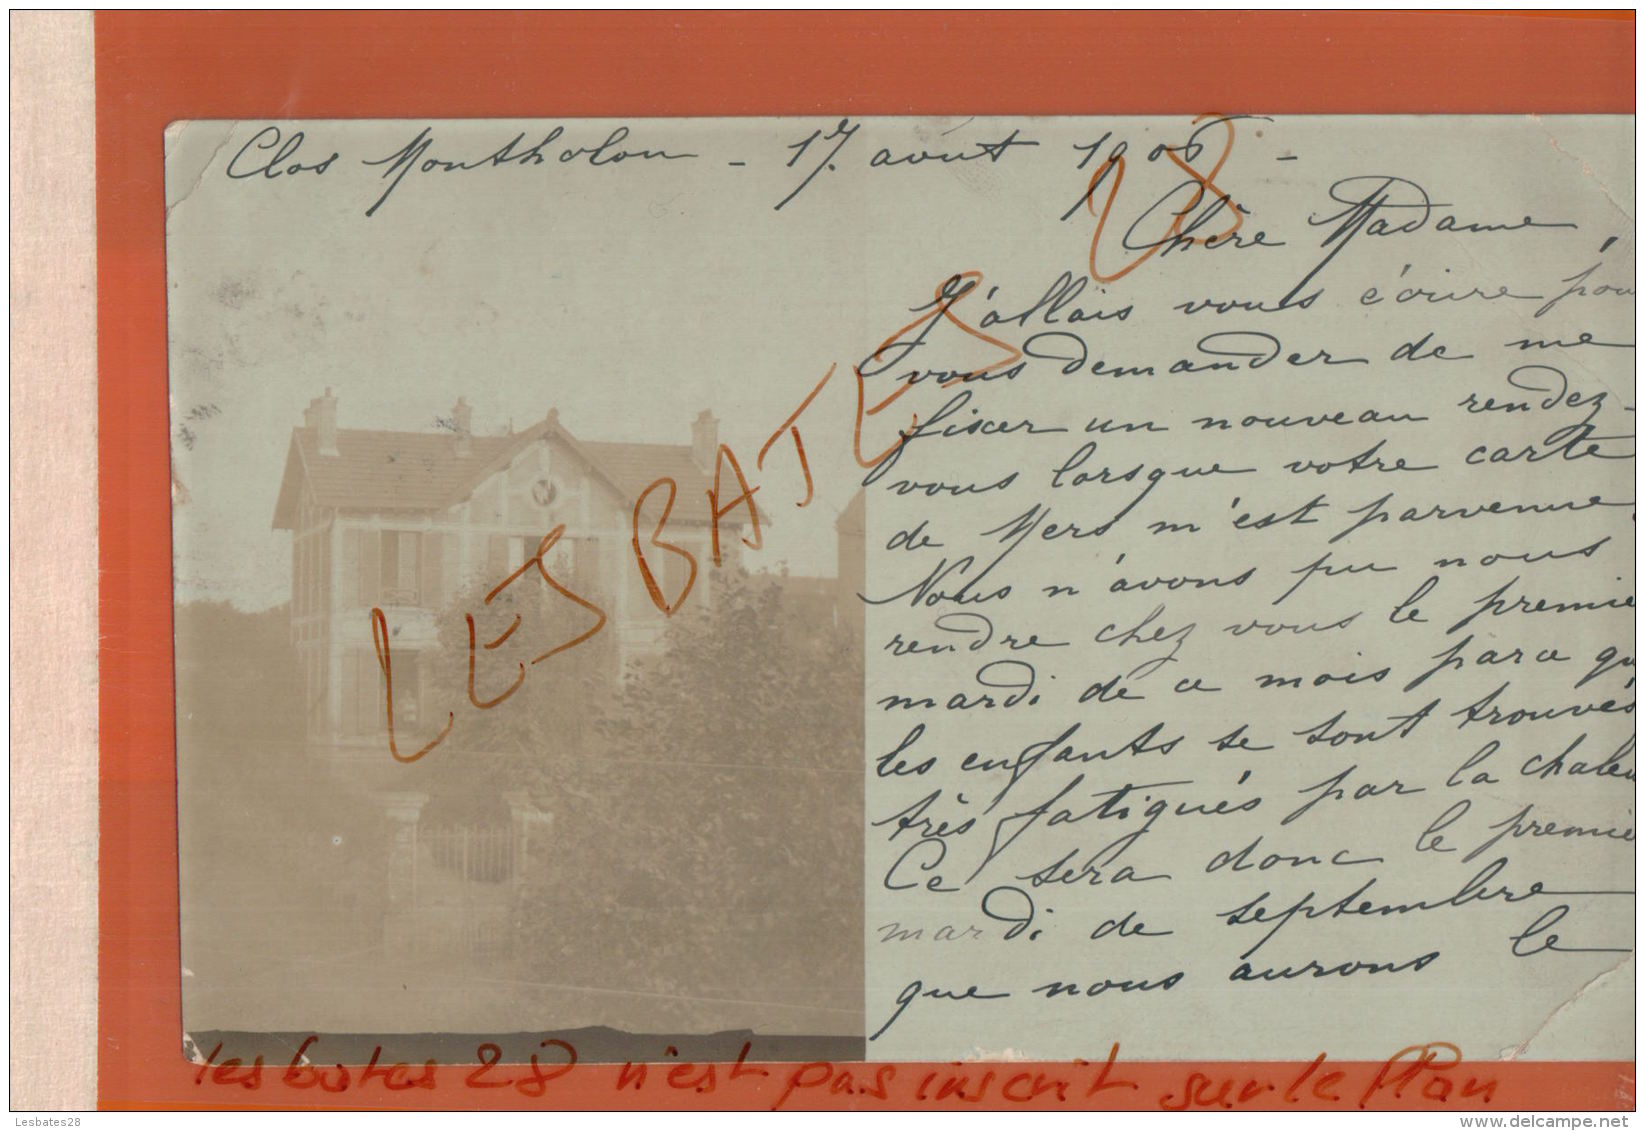 Clos Montholon - 17. avut 1906 -
Chère Madame,
J'allais vous écrire pou
vous demander de me
fixer un nouveau rendez-
vous lorsque votre carte
de Mers m'est parvenue.
Nous n'avons pu nous
rendre chez vous le premie
mardi de ce mois parce qu
les enfants se sont trouvés
très fatigués par la chaleu
Ce sera donc le premie
mardi de septembre
que nous aurons le
LES BATES 28
les bates 28 n'est pas inscrit sur le Plan
Lesbates28
delcampe.net